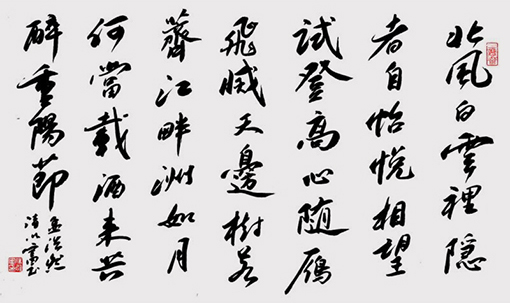 北風白雲裡隱
者自怡悦相望
試登高心随雁
飛滅天邊樹若
薺江畔洲如月
何當載酒来共
醉重陽節
孟浩然